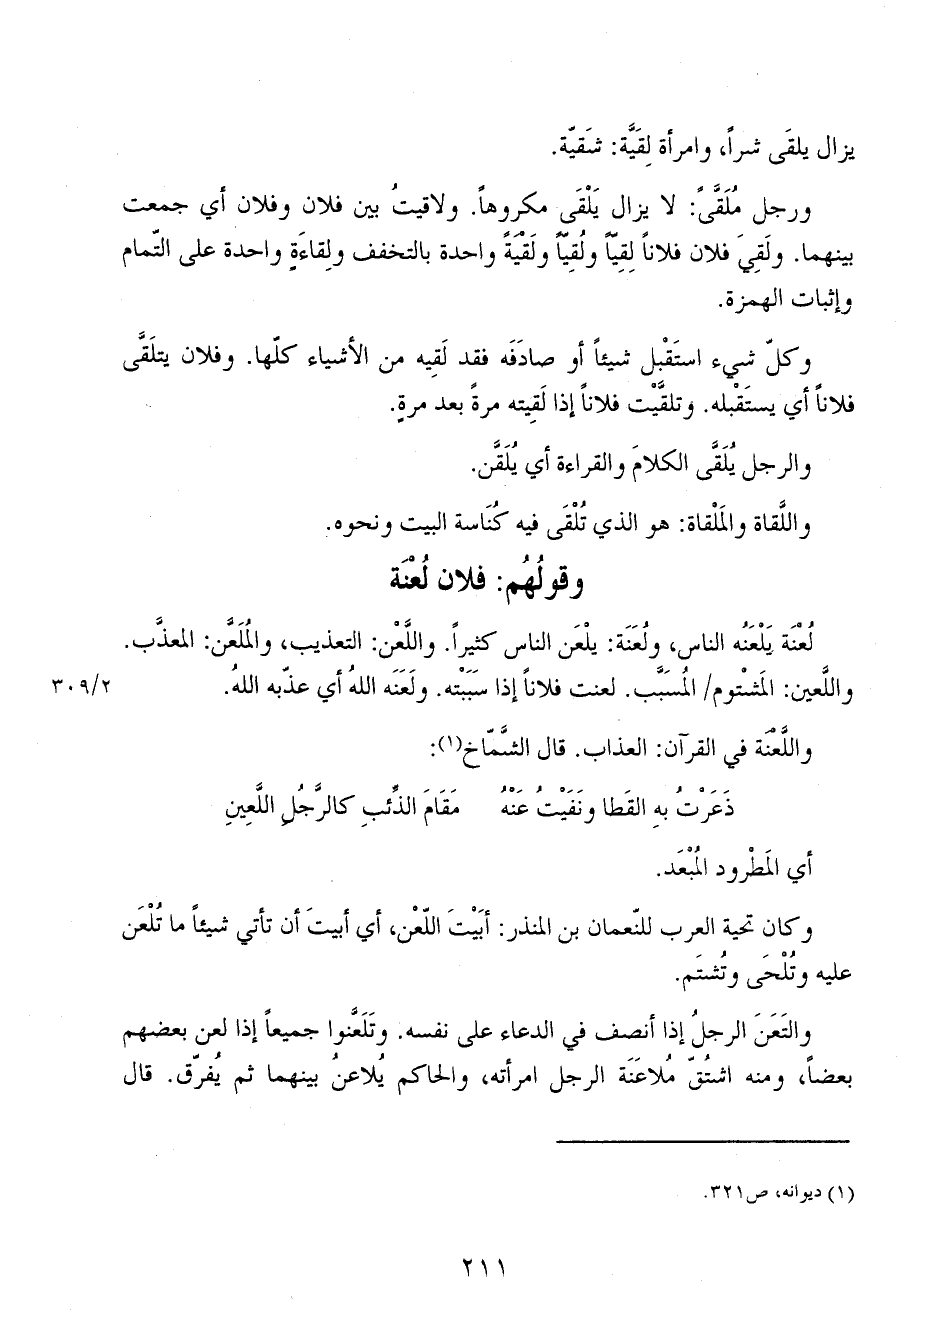 يزال يلقَى شراً، وامرأة لِقَيَّة: شَقيّة.
ورجل مُلَقَّىً: لا يزال يَلْقَى مكروهاً. ولاقيتُ بين فلان وفلان أي جمعت
بينهما. ولَقِيَ فلان فلاناً لِقِيّاً ولُقِيّاً ولَقْيَةً واحدة بالتخفف ولِقاءَةٍ واحدة على التّمام
وإثبات الهمزة.
وكلّ شيء استَقْبل شيئاً أو صادَفَه فقد لَقِيه من الأشياء كلّها. وفلان يتلَقَّى
فلاناً أي يستَقْبله. وتلقيَّْت فلاناً إذا لَقِيته مرةً بعد مرةٍ.
والرجل يُلَقَّى الكلامَ والقراءة أي يُلَقَّن.
واللَّقاة والمَلْقاة: هو الذي تُلْقَى فيه كُنَاسة البيت ونحوه.
وقولُهُم: فلان لُعْنَة
لُعْنَة يَلْعَنُه الناس، ولُعَنَة: يلْعَن الناس كثيراً. واللَّعْن: التعذيب، والمُلَعَّن: المعذَّب.
واللَّعين: المَشْتوم/ المُسَبَّب. لعنت فلاناً إذا سَبَبْته. ولَعَنَه اللهُ أي عذّبه اللهُ. ٣٠٩/٢
واللَّعْنَة في القرآن: العذاب. قال الشَّمّاخ(١):
ذَعَرْتُ بهِ القَطا ونَفَيْتُ عَنْهُ مَقَامَ الذِّئبِ كالرَّجُلِ اللَّعِينِ
أي المَطْرود المُبْعَد.
وكان تحية العرب للنّعمان بن المنذر: أبَيْتَ اللّعْن، أي أبيتَ أن تأتي شيئاً ما تُلْعَن
عليه وتُلْحَى وتُشتَم.
والتَعَنَ الرجلُ إذا أنصف في الدعاء على نفسه. وتَلَعَّنوا جميعاً إذا لعن بعضهم
بعضاً، ومنه اشتُقّ مُلاعَنَة الرجل امرأته، والحاكم يُلاعنُ بينهما ثم يُفرّق. قال
(١) ديوانه، ص٣٢١.
٢١١